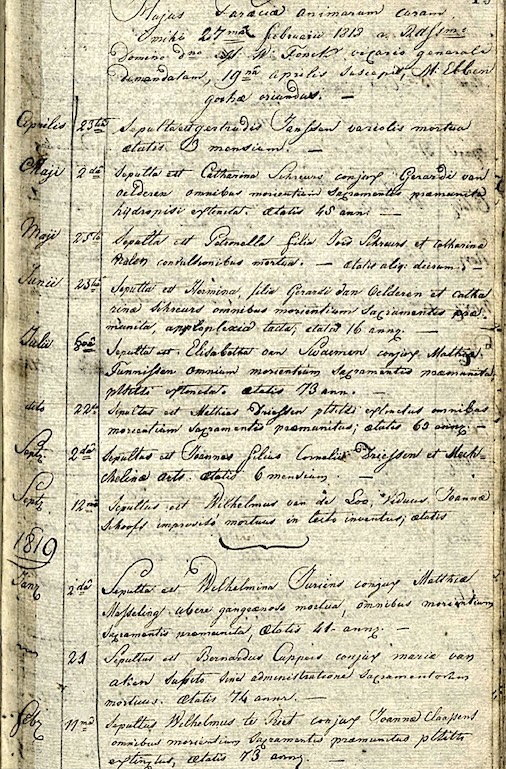 Hujus Paraciæ animarum curam
mihi 27ma februarii 1818 a Rdssmo
Domino dno H. W. Fonck vicario generale
demandatam, 19na aprilis suscepi, H. Ebben
gochæ oriundus. —
Aprilis 23tia Sepulta est gertrudis Janssen variolis mortua
ætatis 9 mensium. —
Maji 2da Sepulta est Catharina Schreurs conjux Gerardi van
Oelderen omnibus morientium sacramentis præmunita
hydropisi extincta. ætatis 45 ann. —
Maji 25ta Sepulta est Petronella filia Jois Schreurs et catharina
convulsionibus mortua. — ætatis aliq: dierum. —
Junii 23tia Sepulta est Hermina, filia Gerardi van Oelderen et catha
rinæ Schreurs omnibus morientium Sacramentis præ-
munita, apoplexia tacta, ætatis 16 annor. —
Julii Sepulta est Elisabetha van Swaemen conjux Mathiæ
Teunnissen omnium morientium sacramentis præmunita,
phtitsi extincta. ætatis 73 ann. —
dito 22da Sepultus est Mathias Driessen phtitsi extinctus omnibus
morientium Sacramentis præmunitus; ætatis 63 annor. —
Septr 2da Sepultus est Joannes filius Cornelii Driessen et Mech-
thelinæ Aerts. ætatis 6 mensium. —
Septr 12ma Sepultus est Wilhelmus van de Loo, Viduus Joannæ
Schoofs improviso mortuus in lecto inventus; ætatis
1819
Janr 2da Sepulta est Wilhelmina Juriens conjux Matthiæ
Masseling ubere gangrænoso mortua, omnibus morientium
Sacramentis præmunita, ætatis 41 annor. —
21 Sepultus est Bernardus Cuppers conjux mariæ van
Aken subito sine administratione sacramentorum
mortuus. ætatis 74 annor. —
Febr 11ma Sepultus Wilhelmus te Riet conjux Joannæ Claassens
omnibus morientium Sacramentis præmunitus phtitsi
extinctus, ætatis 73 annor. —